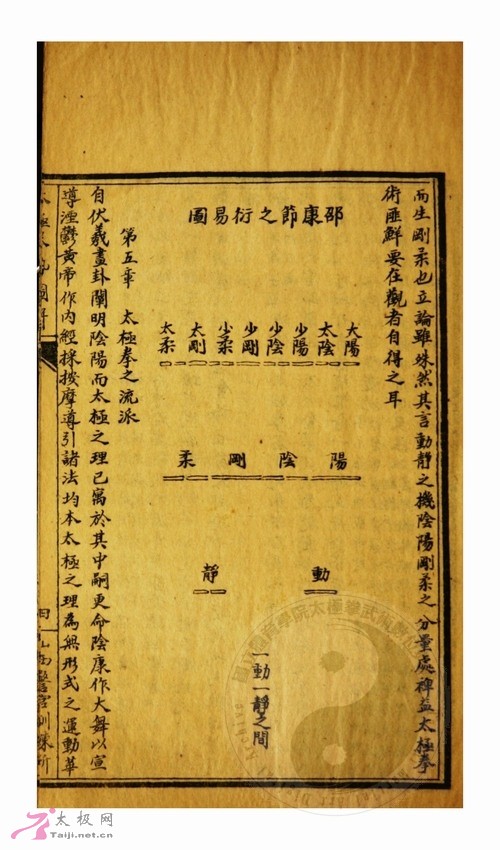 而生剛柔也立論雖殊然其言動靜之機陰陽剛柔之分量處裨益太極拳
術匪鮮要在觀者自得之耳
邵康節之衍易圖
太陽 太陰 少陽 少陰 少剛 少柔 太剛 太柔
陽 陰 剛 柔
動 靜
一動一靜之間
第五章 太極拳之流派
自伏羲畫卦闡明陰陽而太極之理已寓於其中嗣更命陰康作大舞以宣
導湮鬱黃帝作内經採按摩導引諸法均本太極之理為無形式之運動華
山西警官訓練所
太极网
Taiji.net.cn